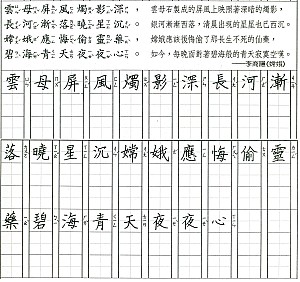 雲母屏風燭影深，
長河漸落曉星沉。
嫦娥應悔偷靈藥，
碧海青天夜夜心。
雲母石製成的屏風上映照著深暗的燭影，
銀河漸漸西落，清晨出現的星星也已西沉。
嫦娥應該後悔偷了那長生不死的仙藥，
如今，每晚面對著碧海般的青天寂寞空嘆。
──李商隱《嫦娥》
雲母屏風燭影深長河漸
落曉星沉嫦娥應悔偷靈
藥碧海青天夜夜心